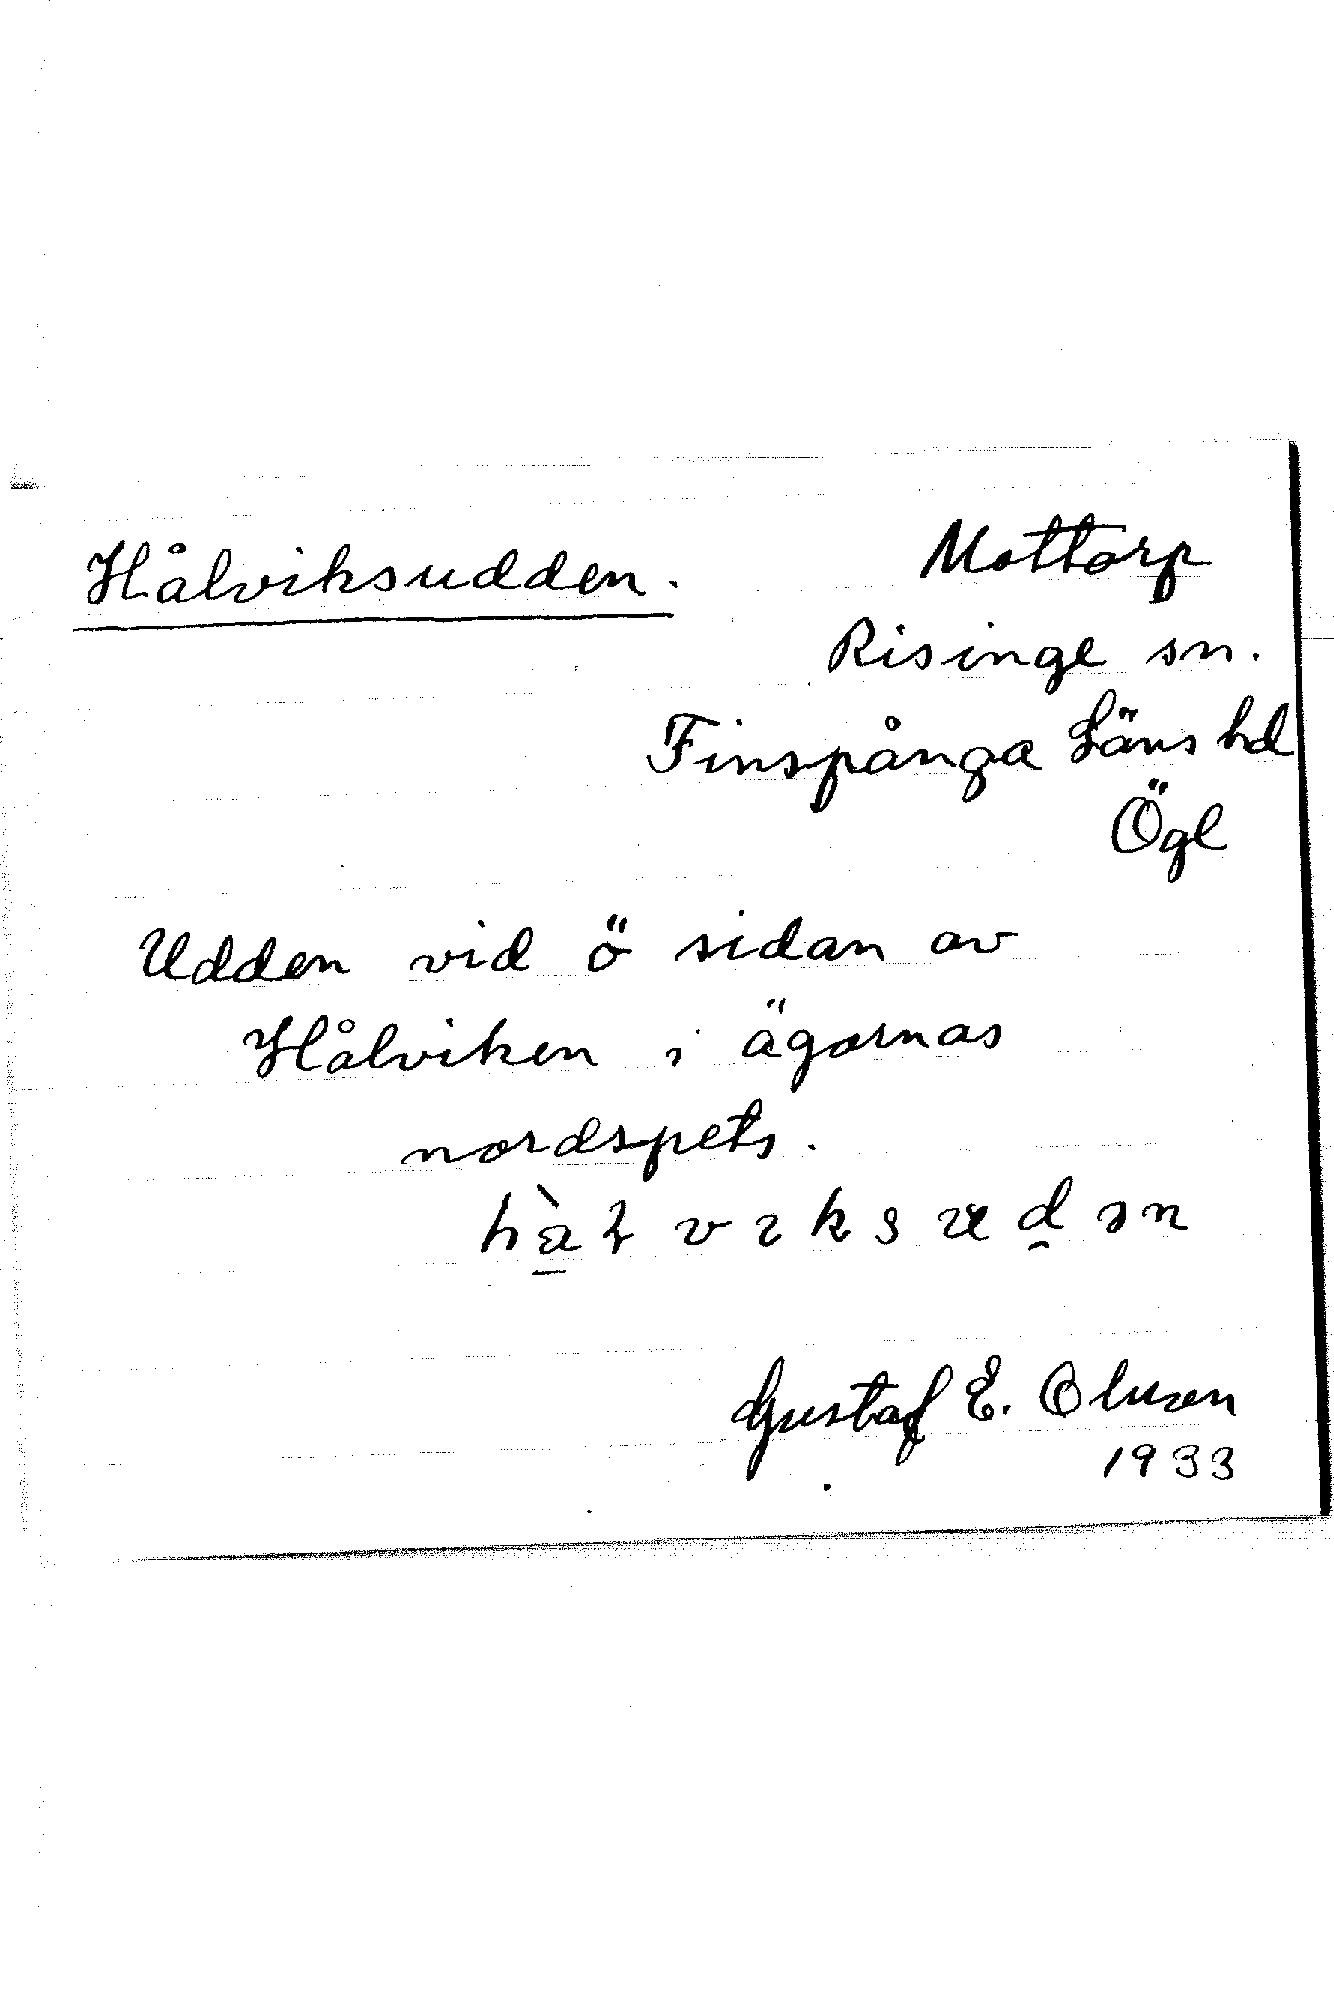 Hålviksudden.
Mottorp
Risinge sn.
Finspånga Läns hd
Ögl
Udden vid ö sidan av
Hålviken i ägornas
nordspets.
Gustaf E. Olsson
1933